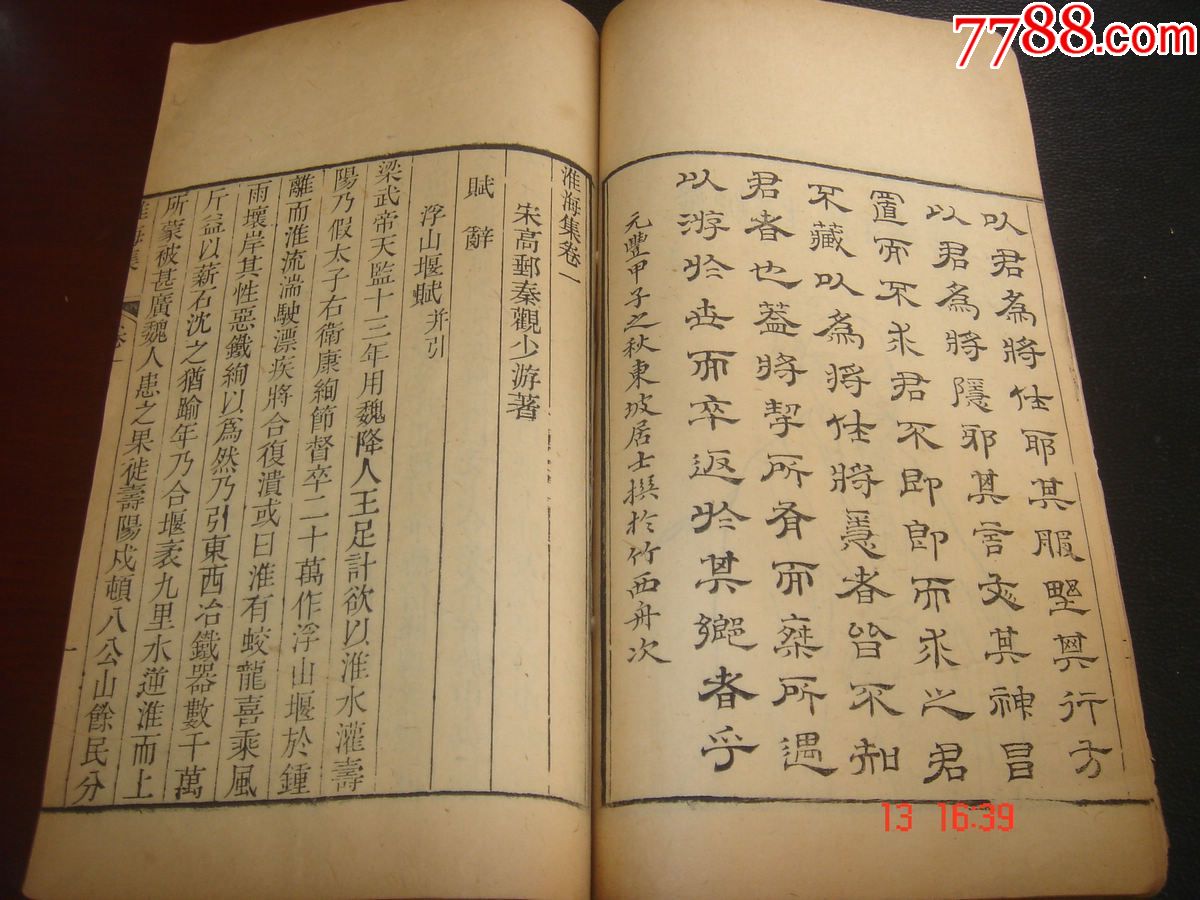 7788.com
以君為將仕耶其服野其行方
以君為將隱耶其言文其神昌
置而不求君不即即而求之君
不藏以為將仕將隱者皆不知
君者也蓋將挈所有而乘所遇
以游於世而卒返於其鄉者乎
元豐甲子之秋東坡居士撰於竹西舟次
淮海集卷一
宋高郵秦觀少游著
賦辭
浮山堰賦并引
梁武帝天監十三年用魏降人王足計欲以淮水灌壽
陽乃假太子右衛康絢節督卒二十萬作浮山堰於鍾
離而淮流湍駛漂疾將合復潰或曰淮有蛟龍喜乘風
雨壞岸其性惡鐵絢以為然乃引東西冶鐵器數千萬
斤益以薪石沈之猶踰年乃合堰袤九里水逆淮而上
所蒙被甚廣魏人患之果徙壽陽戍頓八公山餘民分
淮海集 卷一 一
13 16:39